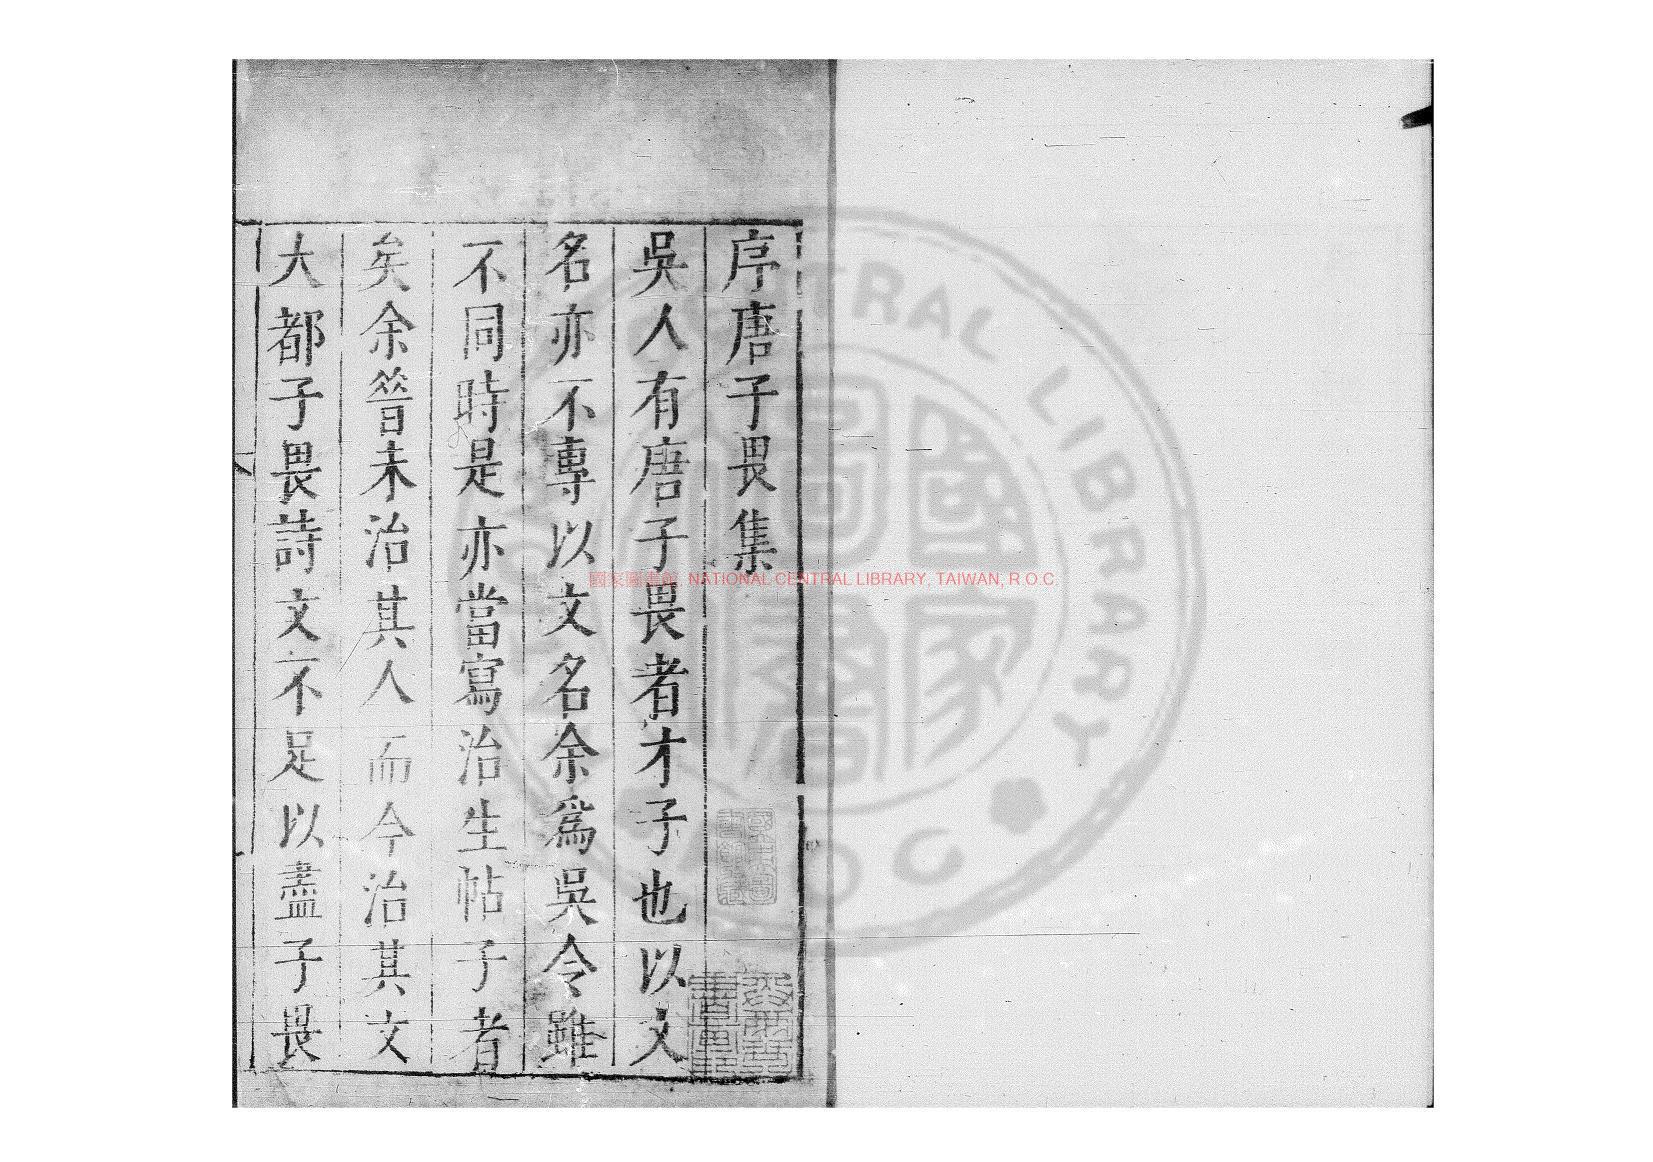 序唐子畏集
吳人有唐子畏者才子也以文
名亦不專以文名余爲吳令雖
不同時是亦當寫治生帖子者
矣余昝未治其人而今治其文
大都子畏詩文不足以盡子畏
國家圖書館, NATIONAL CENTRAL LIBRARY, TAIWAN, R.O.C.